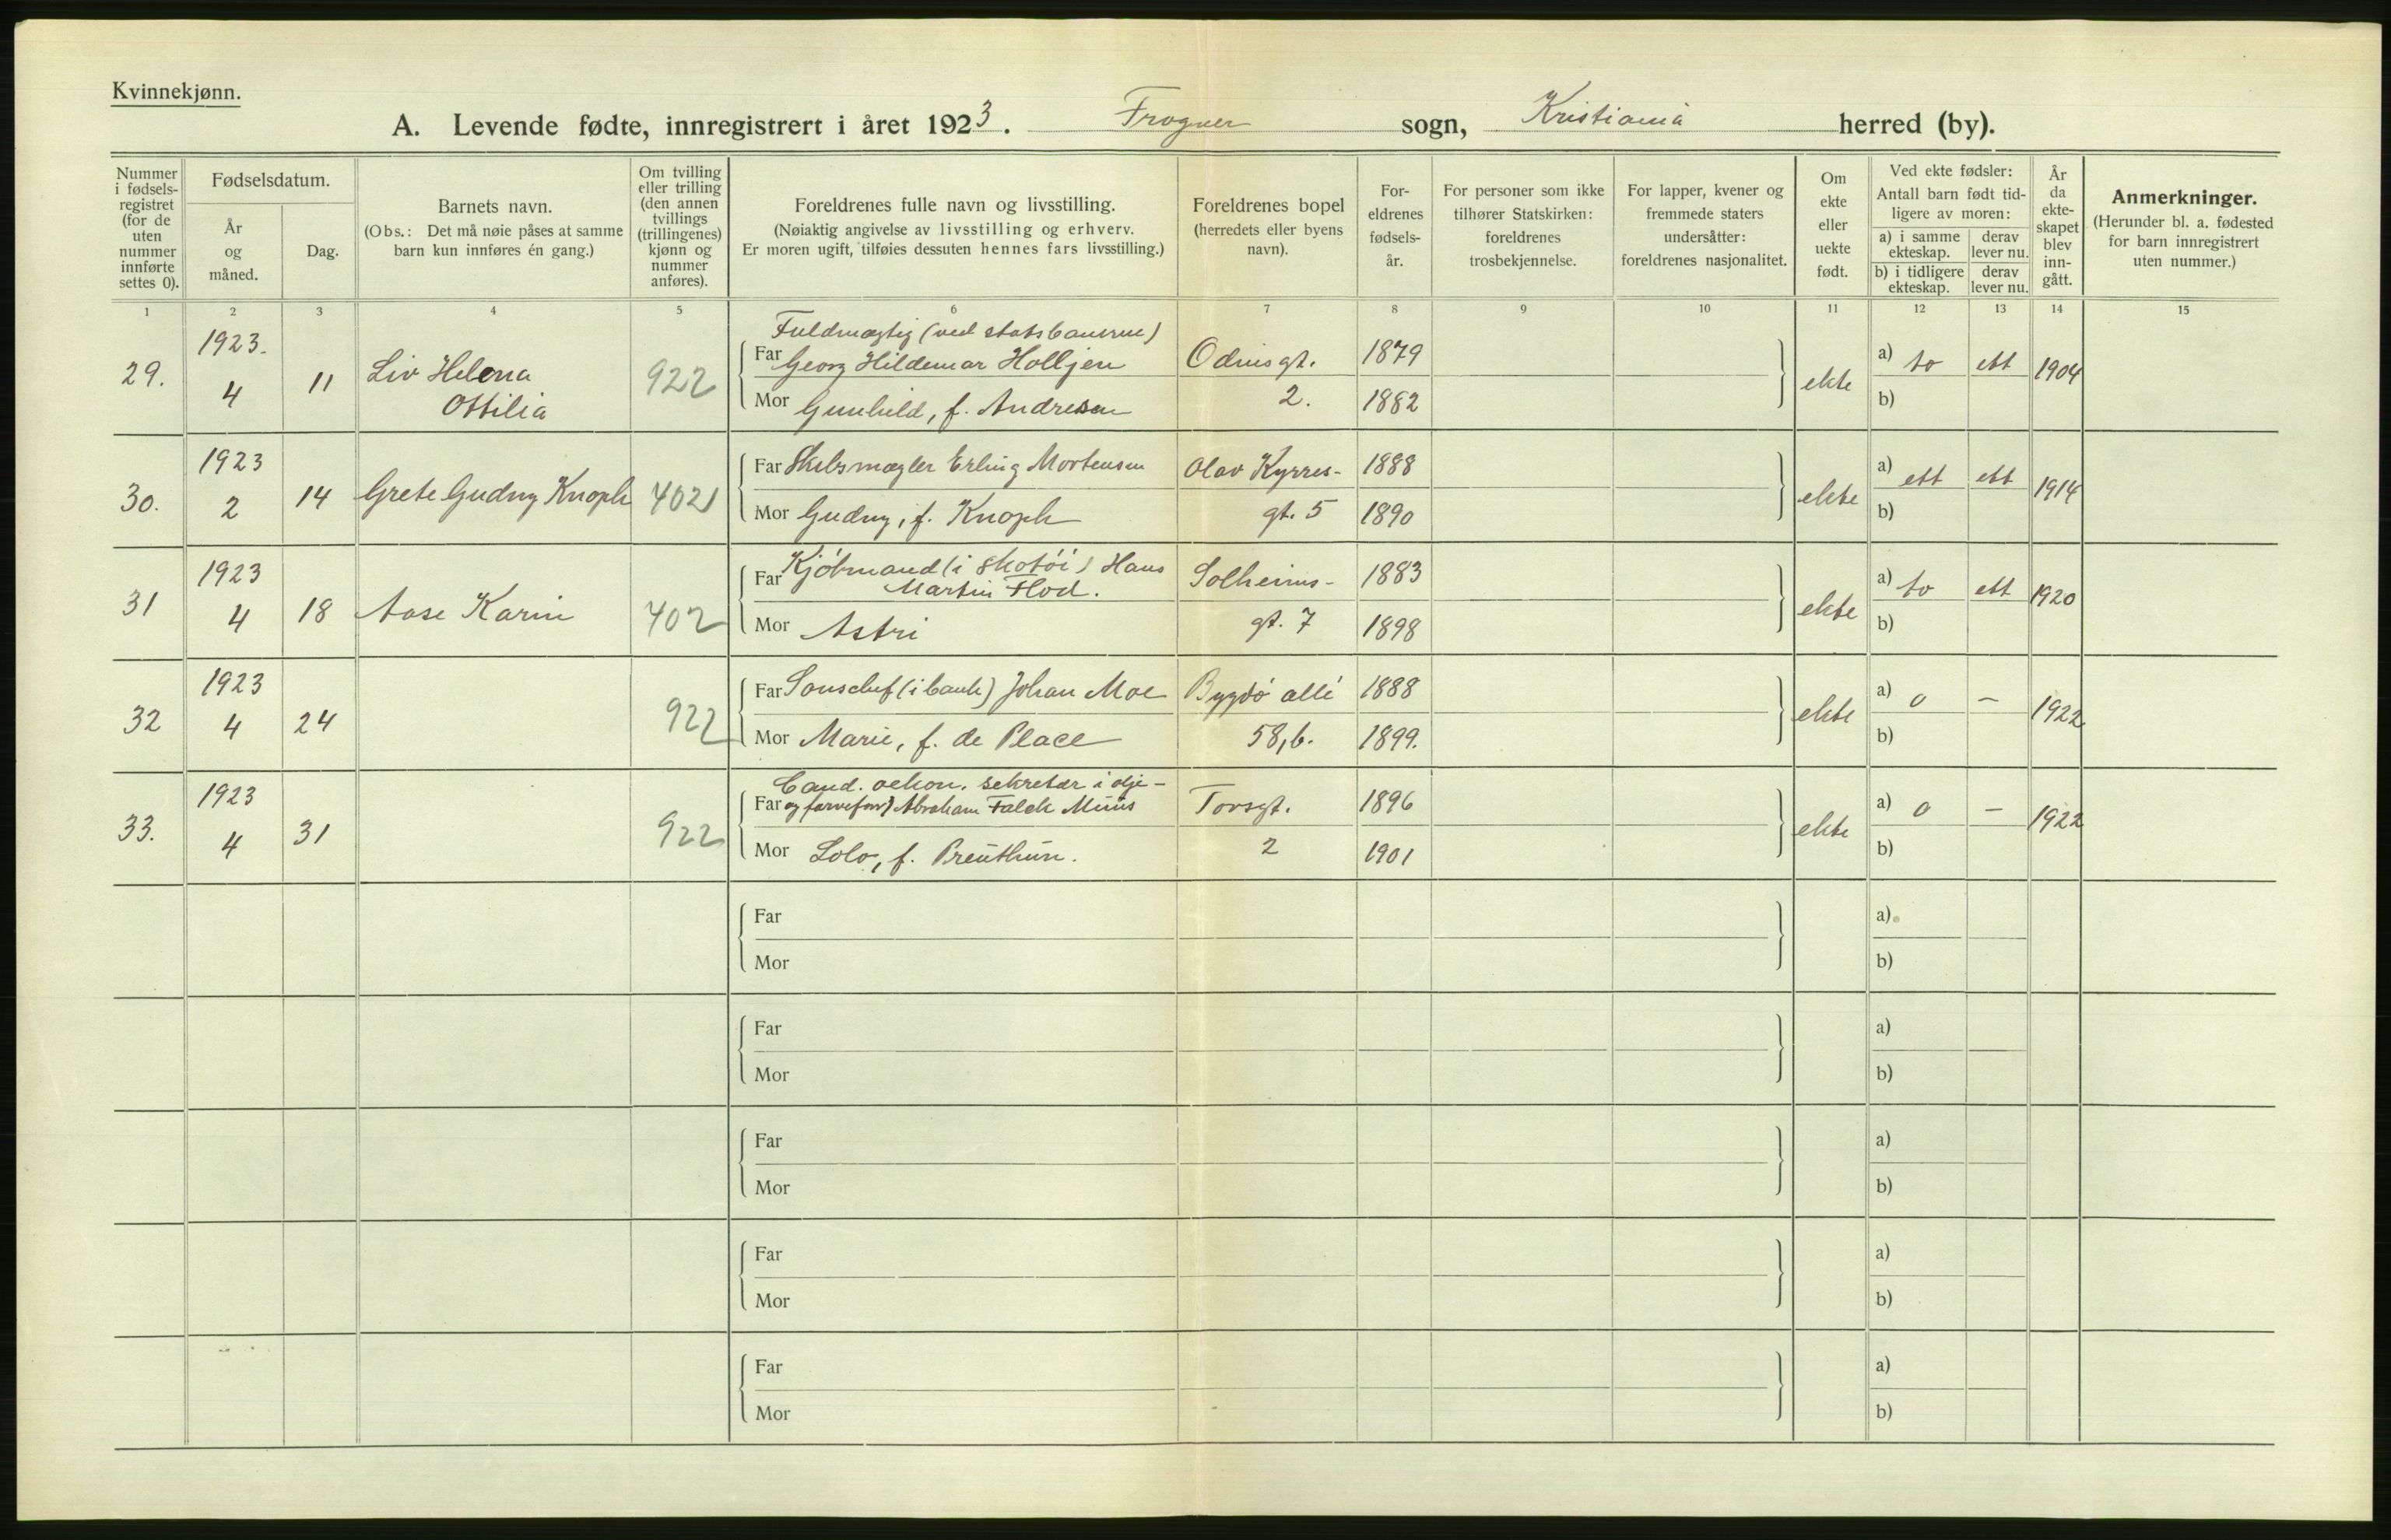 Kvinnekjønn.
A. Levende fødte, innregistrert i året 1923. Frogner sogn, Kristiania herred (by).
Nummer i fødsels-registret (for de uten nummer innførte settes 0).
Fødselsdatum.
År og måned.
Dag.
Barnets navn.
(Obs.: Det må nøie påses at samme barn kun innføres én gang.)
Om tvilling eller trilling (den annen tvillings (trillingenes) kjønn og nummer anføres).
Foreldrenes fulle navn og livsstilling.
(Nøiaktig angivelse av livsstilling og erhverv.
Er moren ugift, tilføies dessuten hennes fars livsstilling.)
Foreldrenes bopel (herredets eller byens navn).
For-eldrenes fødsels-år.
For personer som ikke tilhører Statskirken: foreldrenes trosbekjennelse.
For lapper, kvener og fremmede staters undersåtter: foreldrenes nasjonalitet.
Om ekte eller uekte født.
Ved ekte fødsler:
Antall barn født tid-ligere av moren:
a) i samme ekteskap. derav lever nu.
b) i tidligere ekteskap. derav lever nu.
År da ekte-skapet blev inn-gått.
Anmerkninger.
(Herunder bl. a. fødested for barn innregistrert uten nummer.)
1 2 3 4 5 6 7 8 9 10 11 12 13 14 15
29. 1923. 4 11 Liv Helena Ottilia 922
Fuldmægtig (ved statsbanerne)
Far Georg Hildemar Holtjen Odinsgt. 1879
Mor Gunhild, f. Andresen 2. 1882
ekte a) to ett 1904
b)
30. 1923 2 14 Grete Gudny Knoph 402
Far Skibsmægler Erling Mortensen Olav Kyrres- 1888
Mor Gudny, f. Knoph gt. 5 1890
ekte a) ett ett 1914
b)
31 1923 4 18 Aase Karin 402
Far Kjöbmand (i skotöi) Hans
Martin Flod. Solheims- 1883
Mor Astri gt. 7 1898
ekte a) to ett 1920
b)
32 1923 4 24 922
Far Souschef (i bank) Johan Moe Bygdö allé 1888
Mor Marie, f. de Place 58, b. 1899.
ekte a) 0 – 1922
b)
33. 1923 4 31 922
Cand. oekon. sekretær i olje-
Far og farveforr) Abraham Falck Müüs Torsgt. 1896
Mor Lolo, f. 2 1901
ekte a) 0 – 1922
b)
Far a)
Mor b)
Far a)
Mor b)
Far a)
Mor b)
Far a)
Mor b)
Far a)
Mor b)